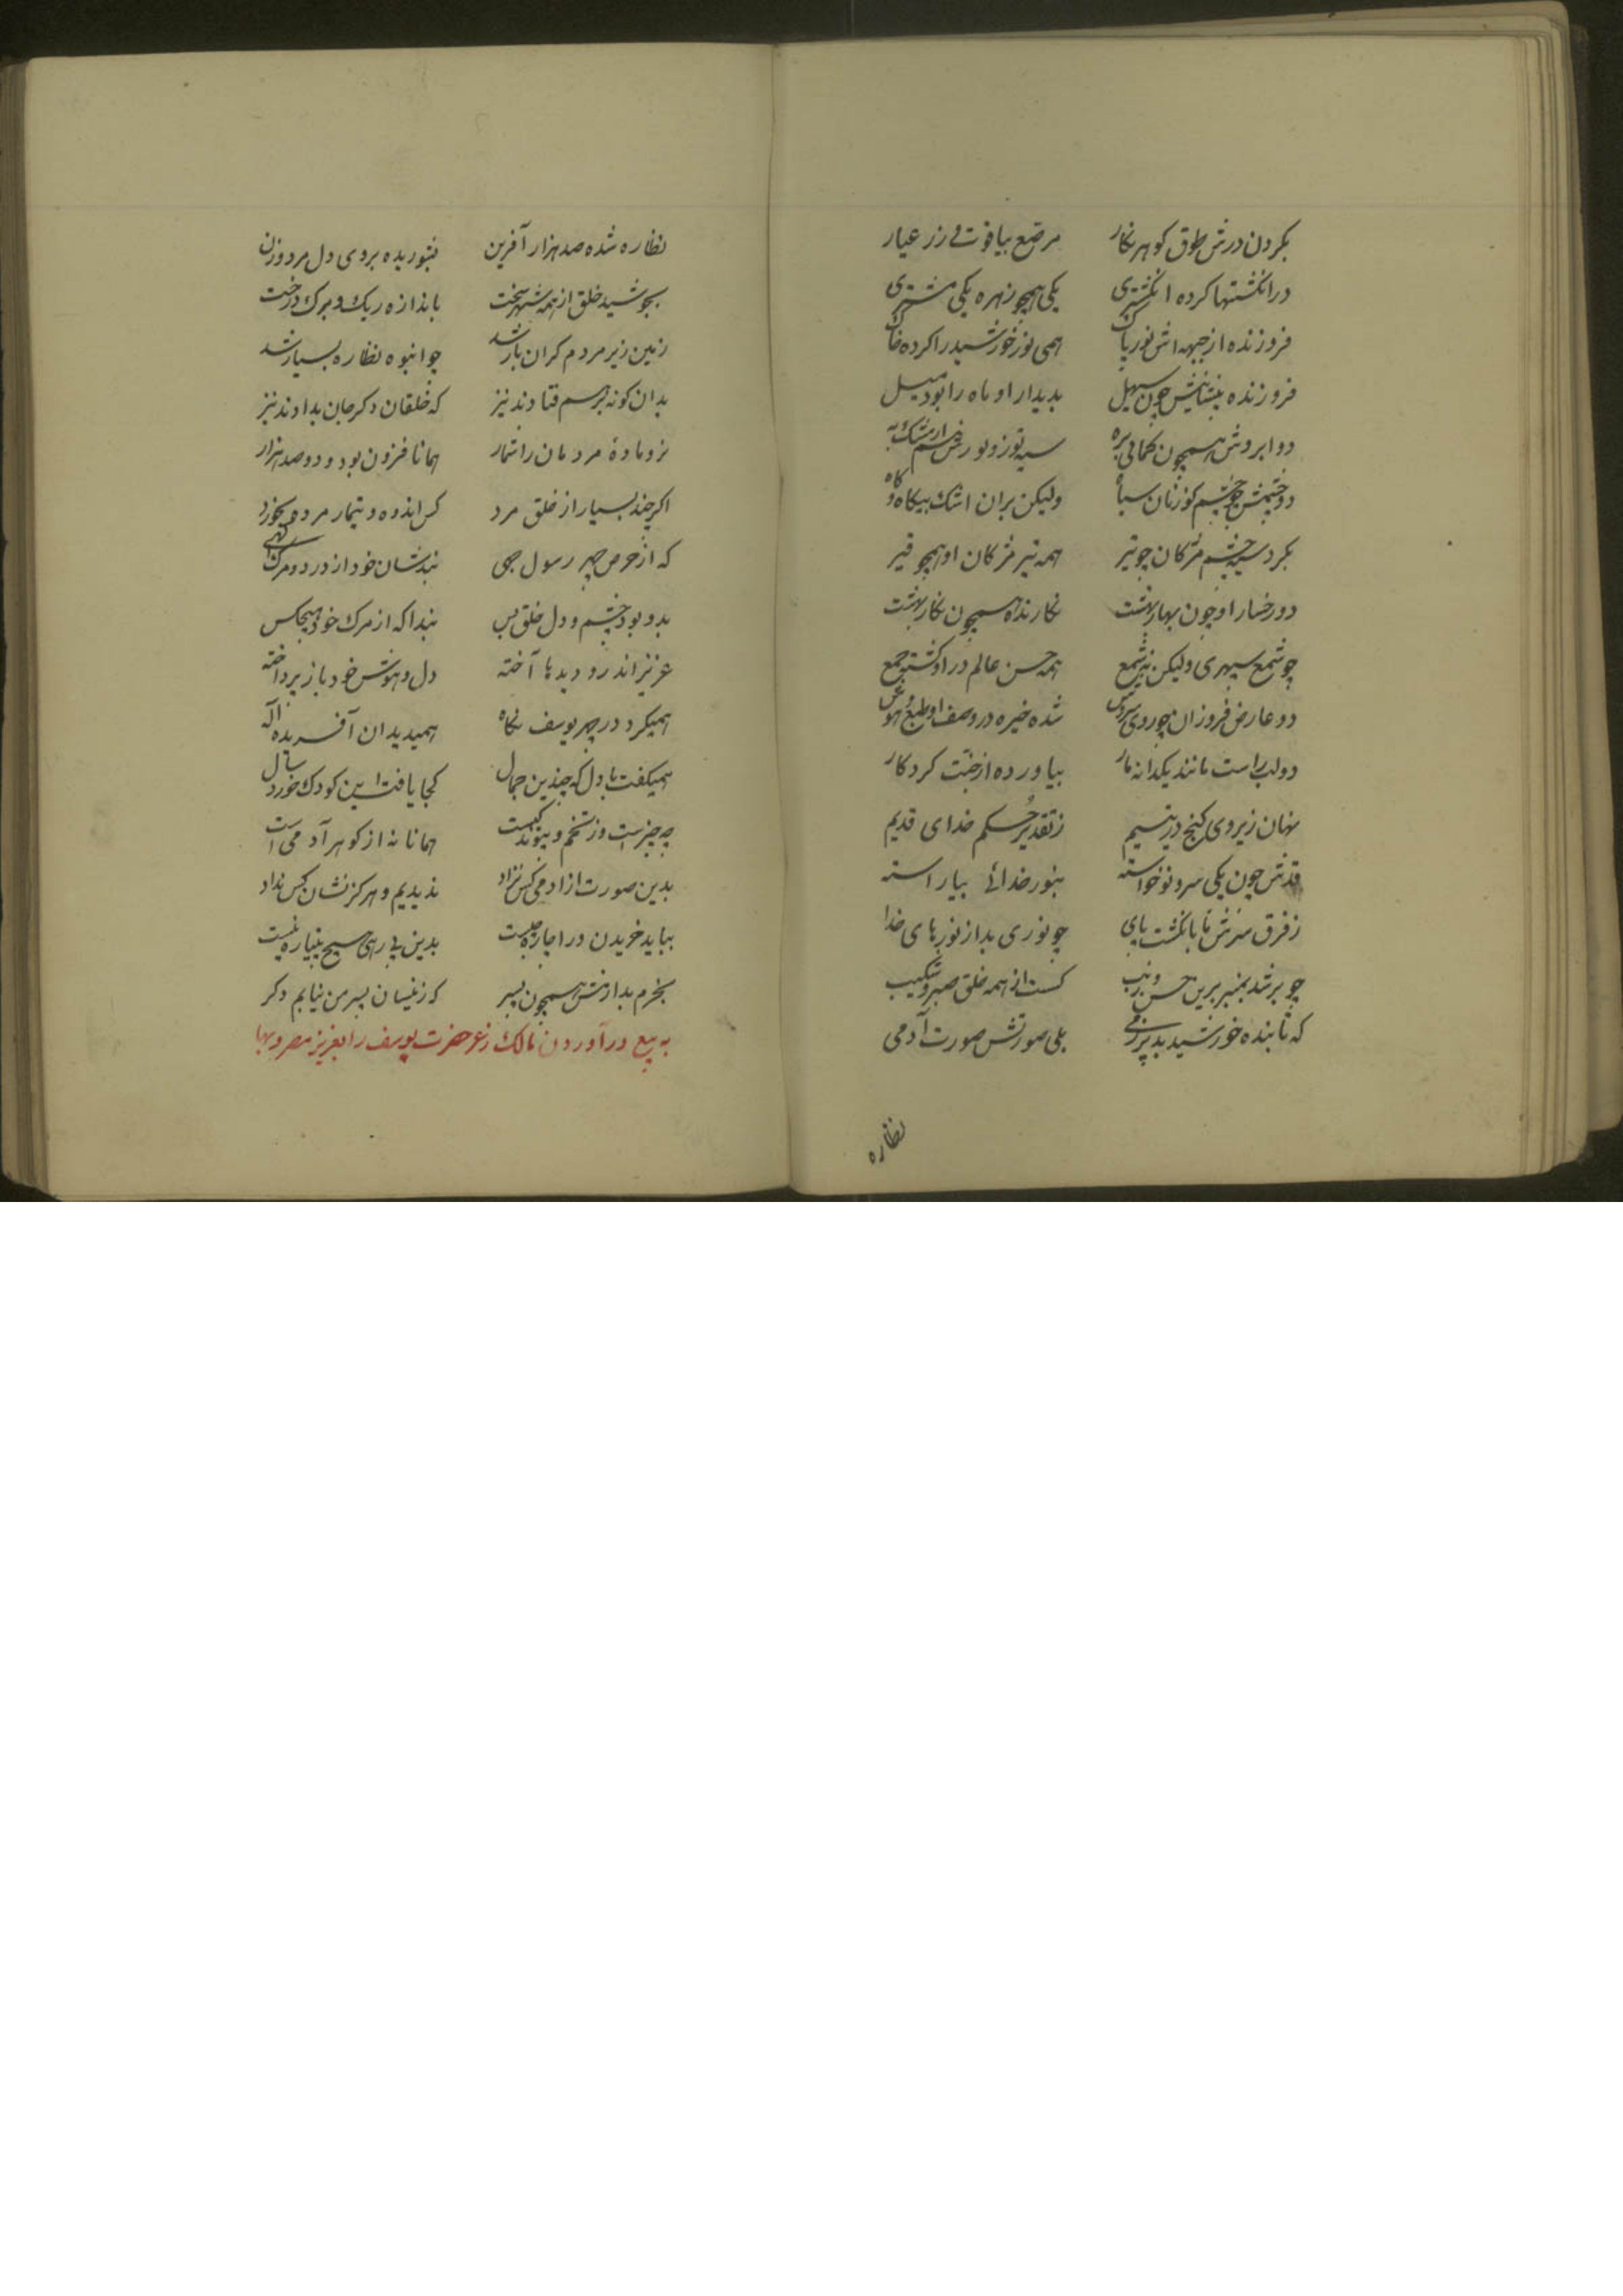 بکردن درش طوق کوهر نکار مرصع بیاقوت و زر عیار
در انکشتها کرده انکشتری یکی همچو زهره یکی مشتری
فروزنده از جبهه اش نور پاک همی نور خورشید را کرده خاک
فروزنده پیشانیش چون سهیل بدیدار او ماه را بود میل
دو ابروش همچون کمانی بزه سیه توز و توز
دو چشمش چو چشم کوزنان سیاه ولیکن بران اشک بیکاه و کاه
بکرد سیه چشم مژکان چو تیر همه تیر مژکان او همچو قیر
دو رخسار او چون بهار بهشت نکارنده همچون نکار بهشت
چو شمع سپهری ولیکن نه شمع همه حسن عالم در او کشته جمع
دو عارض فروزان چو روی سروش شده خیره در وصف او طبع و هوش
دو لب راست مانند یکدانه نار بیاورده از جنت کردکار
نهان زیر وی کنج در یتیم ز تقدیر حکم خدای قدیم
قدش چون یکی سرو نوخواسته بنور خدائی بیاراسته
ز فرق سرش تا بانکشت پای چو نوری بد از نورهای خدا
چو بر شد بمنبر برین حسن و زیب کسست از همه خلق صبر و شکیب
که تابنده خورشید بد بر زمی بلی صورتش صورت آدمی
نظاره
نظاره شده صد هزار آفرین بشوریده بر وی دل مرد و زن
بجوشید خلق از همه شهر سخت باندازه ریک و برک درخت
زمین زیر مردم کران بار شد چو انبوه نظاره بسیار شد
بدان کونه بر هم فتادند نیز که خلقان دکر جان بدادند نیز
نر و مادهٔ مردمان را شمار همانا فزون بود و دو صد هزار
اکر چند بسیار از خلق مرد کس اندوه و تیمار مرده نخورد
که از حرص چهر رسول بهی نبدشان خود از درد و مرک آکهی
بدو بود چشم و دل خلق بس نبد اکه از مرک خود هیچکس
عزیز اندر و دیدها آخته دل و هوش خود باز پرداخته
همیکرد در چهر یوسف نکاه همیدید ان آفریده اله
همیکفت با دل که چندین جمال کجا یافت این کودک خورد سال
چه چیزست وز تخم و پیوند کیست همانا نه از کوهر آدمی است
بدین صورت از ادمی کس نژاد ندیدیم و هرکز نشان کس نداد
بباید خریدن ورا چاره چیست بدین در رهی هیچ پتیاره نیست
بخرم بدارمش همچون پسر که زینسان پسر من نیابم دکر
به بیع درآوردن مالک زعر حضرت یوسف را بعزیز مصر و بها